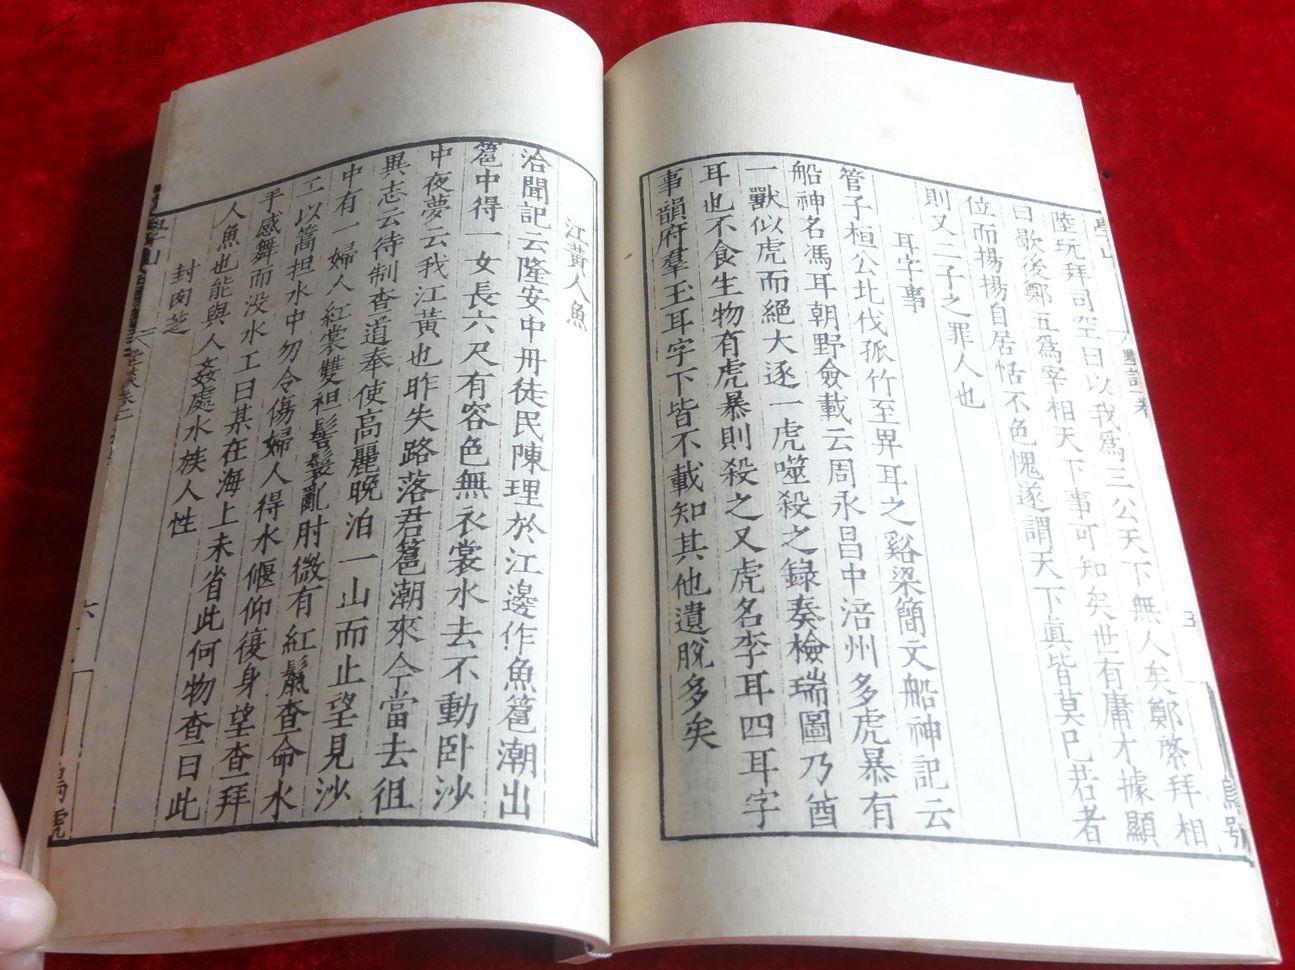 陸玩拜司空曰以我爲三公天下無人矣鄭綮拜相
曰歇後鄭五爲宰相天下事可知矣世有庸才據顯
位而揚揚自居恬不色愧遂謂天下眞皆莫巳若者
則又二子之罪人也
耳字事
管子桓公北伐孤竹至畀耳之谿梁簡文船神記云
船神名馮耳朝野僉載云周永昌中涪州多虎暴有
一獸似虎而絕大逐一虎噬殺之録奏檢瑞圖乃酋
耳也不食生物有虎暴則殺之又虎名李耳四耳字
事韻府羣玉耳字下皆不載知其他遺脫多矣
江黃人魚
洽聞記云隆安中丹徒民陳理於江邊作魚簄潮出
簄中得一女長六尺有容色無衣裳水去不動卧沙
中夜夢云我江黃也昨失路落君簄潮來今當去徂
異志云待制查道奉使高麗晚泊一山而止望見沙
中有一婦人紅裳雙袒髻鬟亂肘微有紅鬣查命水
工以篙担水中勿令傷婦人得水偃仰復身望查拜
手感舞而没水工曰某在海上未省此何物查曰此
人魚也能與人姦處水族人性
封肉芝
六